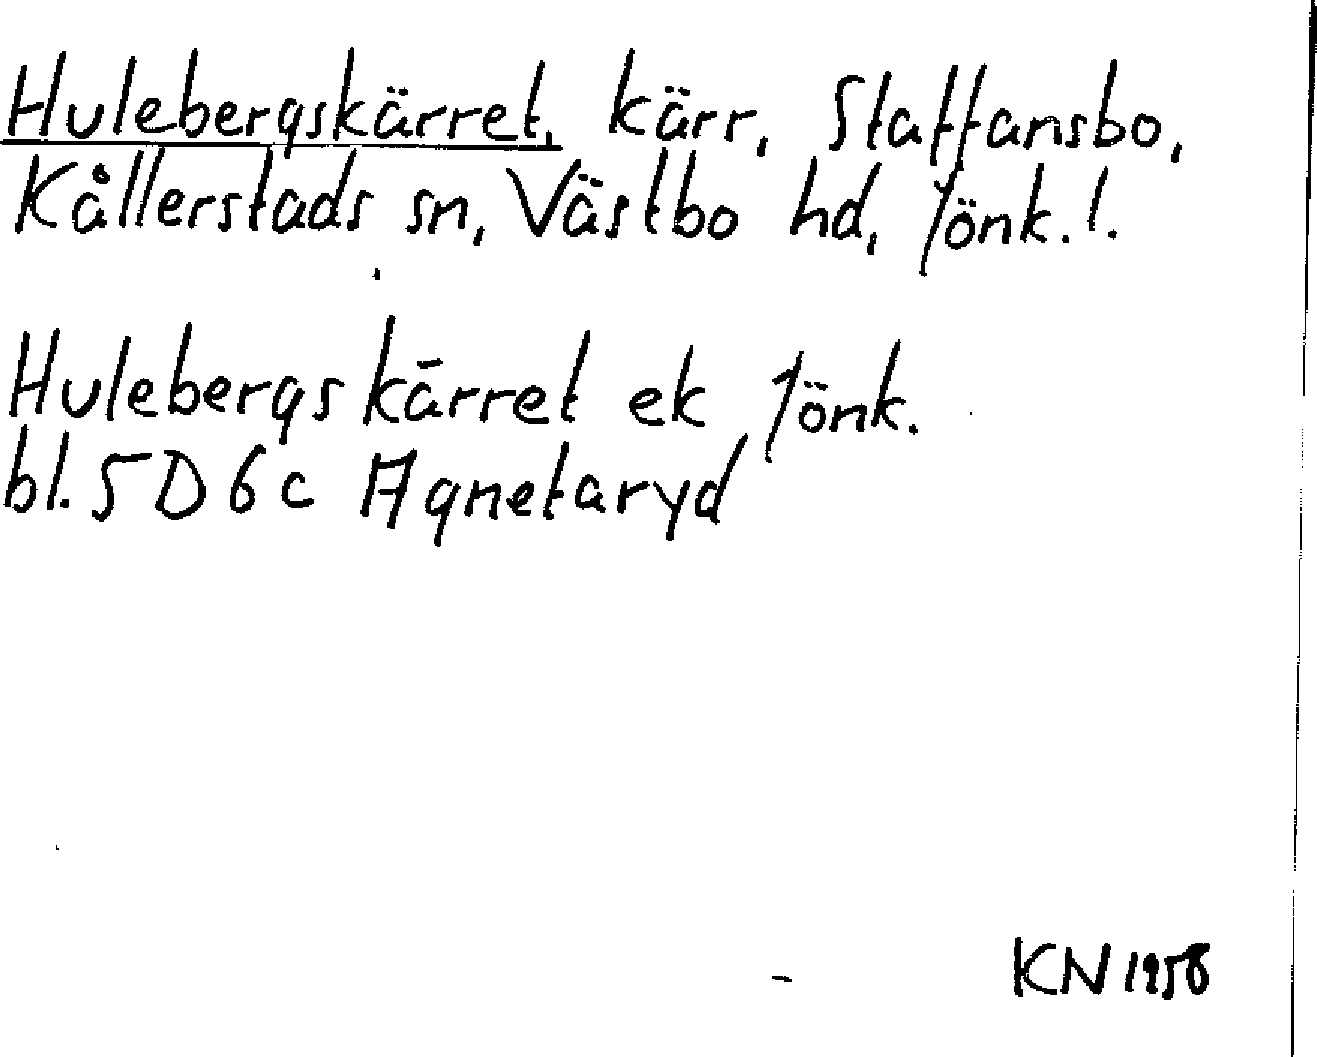 Hulebergskärret, kärr, Staffansbo,
Kållerstads sn, Västbo hd, Jönk. l.
Hulebergskärret ek Jönk.
bl. 5D 6c Agnetaryd
KN 1958